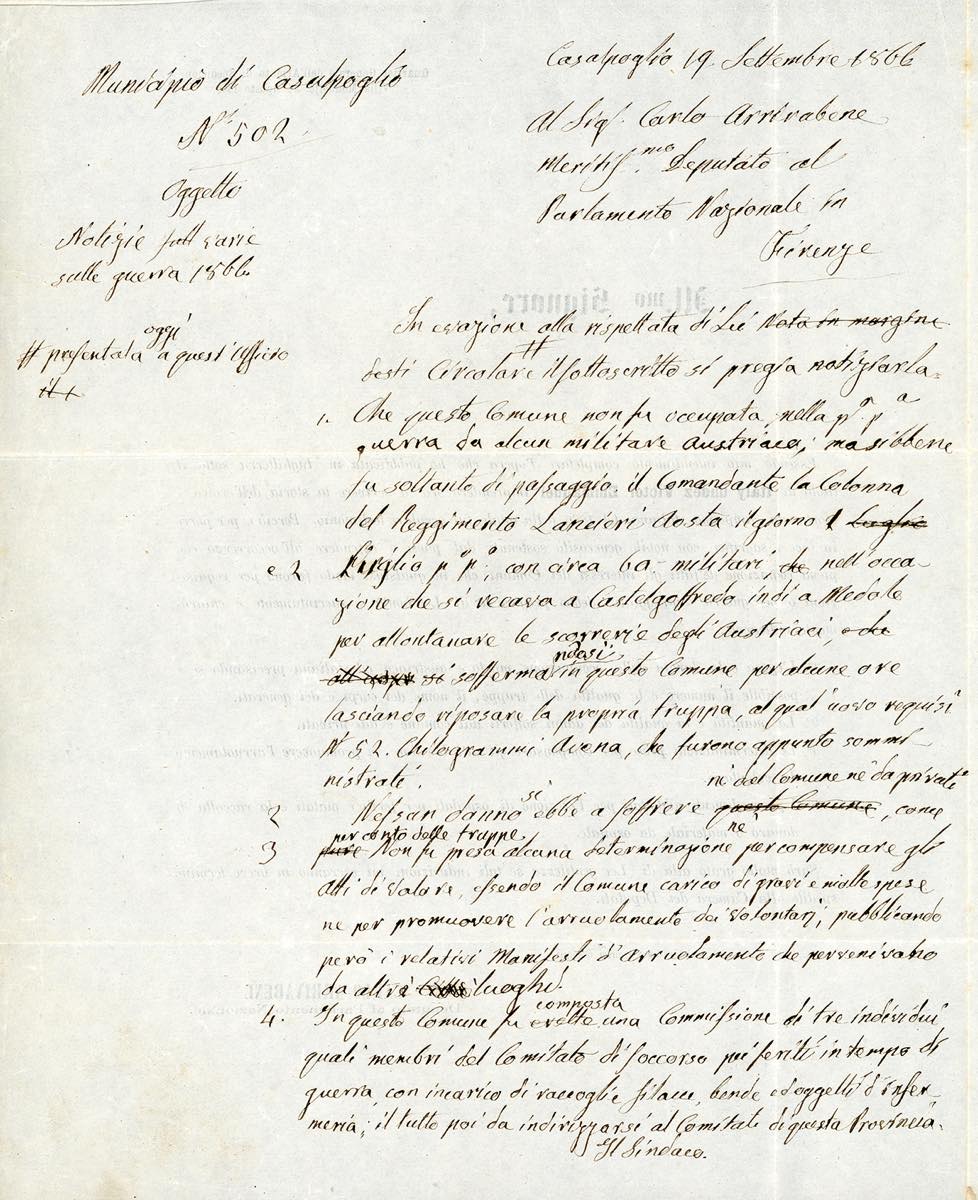 Municipio di Casalpoglio
N.° 502
Oggetto
Notizie
sulle guerra 1866
Casalpoglio 19. Settembre 1866
Al Sig.r Carlo Arrivabene
Meritiss.mo Deputato al
Parlamento Nazionale in
Firenze
In evazione alla rispettata di Lei Nota in margine
# presentata oggi a quest'Ufficio
il
Circolare il sottoscritto si pregia notiziarla.
1. Che questo Comune non fu occupata nella p.° p.a
guerra da alcun militare Austriaco; ma sibbene
fu soltanto di passaggio il Comandante la Colonna
del Reggimento Lancieri Aosta il giorno 1 Luglio
e 2 p.° p.°, con circa 60 militari, che nell'occa-
zione che si recava a Castelgoffredo indi a Medole
per allontanare le scorrerie degli Austriaci, e che
si soffermandosi in questo Comune per alcune ore
lasciando riposare la propria truppa, al qual uovo requisì
N° 52. Chilogrammi Avena, che furono appunto sommi-
nistrati.
2 Nessan danno si ebbe a soffrere questo Comune ni del Comune nè da privati, come
pure per conto delle truppe
3 Non fu presa alcuna determinazione ne per compensare gli
atti di valare, essendo il Comune carico di gravi e molte spese
ne per promuovere l'arruolamento dei Volontarj, pubblicando
però i relativi Manifesti d'arruolamento che pervenivano
da altri luoghi.
4. In questo Comune fu composta una Commissione di tre individui
quali membri del Comitato di soccorso pei feriti in tempo di
guerra con incarico di raccoglie filacce, bende ed oggetti d'infer-
meria; il tutto poi da indirizzarsi al Comitati di questa Provincia.
Il Sindaco.